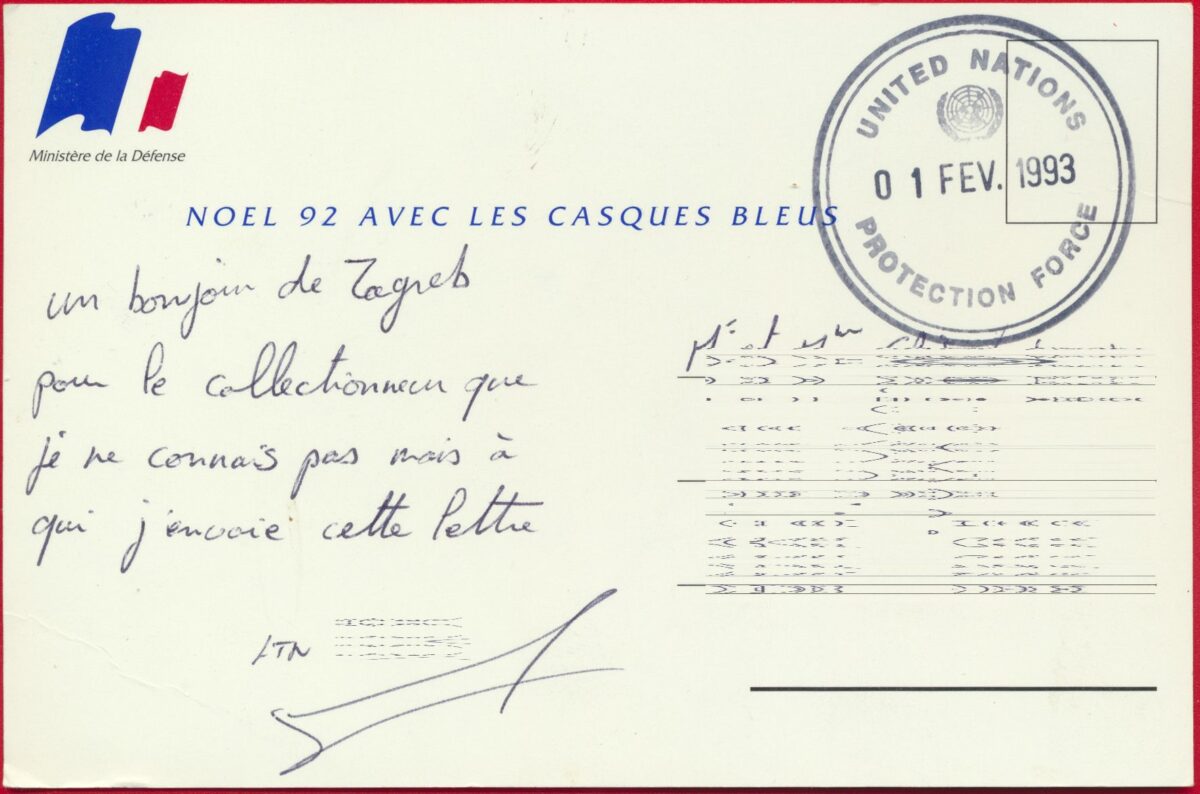 Ministère de la Défense
NOEL 92 AVEC LES CASQUES BLEUS
UNITED NATIONS
01 FEV. 1993
PROTECTION FORCE
un bonjour de Zagreb
pour le collectionneur que
je ne connais pas mais à
qui j'envoie cette lettre
LTN